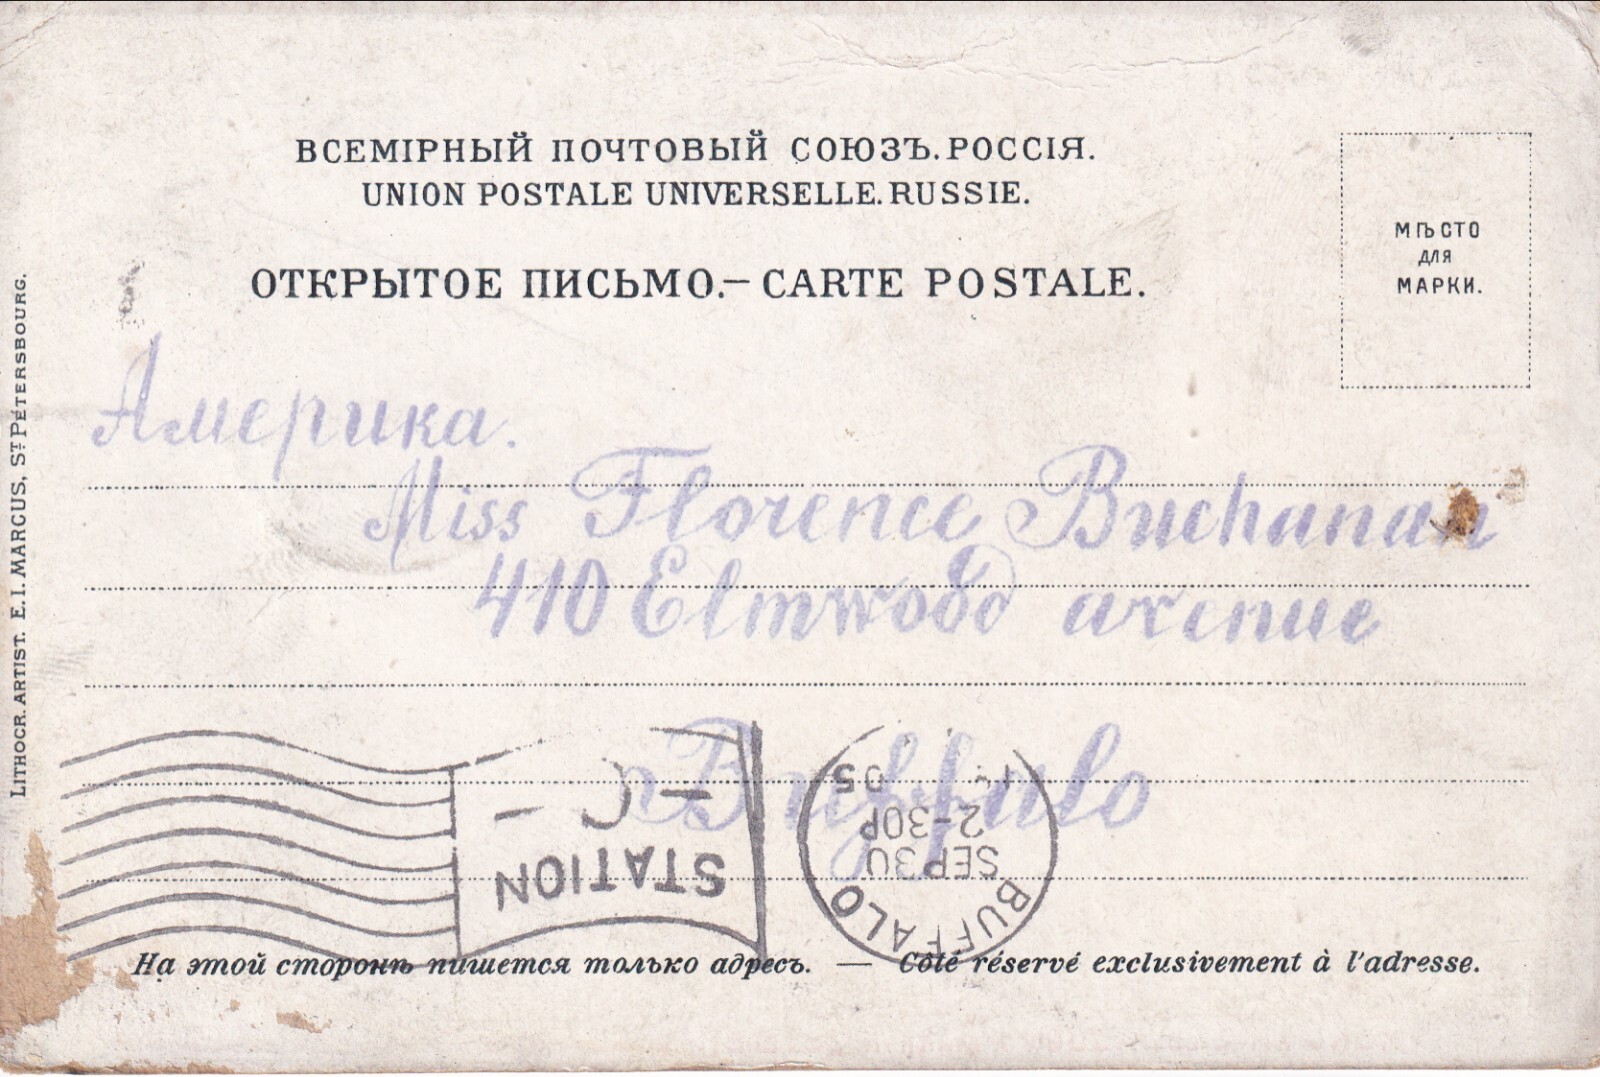 ВСЕМІРНЫЙ ПОЧТОВЫЙ СОЮЗЪ. РОССІЯ.
UNION POSTALE UNIVERSELLE. RUSSIE.
ОТКРЫТОЕ ПИСЬМО.— CARTE POSTALE.
МѢСТО
ДЛЯ
МАРКИ.
Америка.
Miss Florence Buchanan
410 Elmwood avenue
Buffalo
STATION
– C –
BUFFALO
SEP 30
2–30P
05
На этой сторонѣ пишется только адресъ. — Côté réservé exclusivement à l'adresse.
LITHOGR. ARTIST. E. I. MARCUS, ST. PÉTERSBOURG.